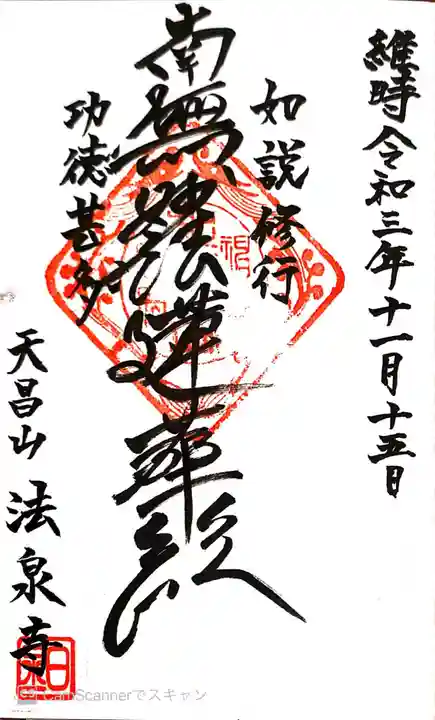 維時令和三年十一月十五日
如説修行
南無妙法蓮華経
功徳甚多
天昌山 法泉寺
CamScannerでスキャン